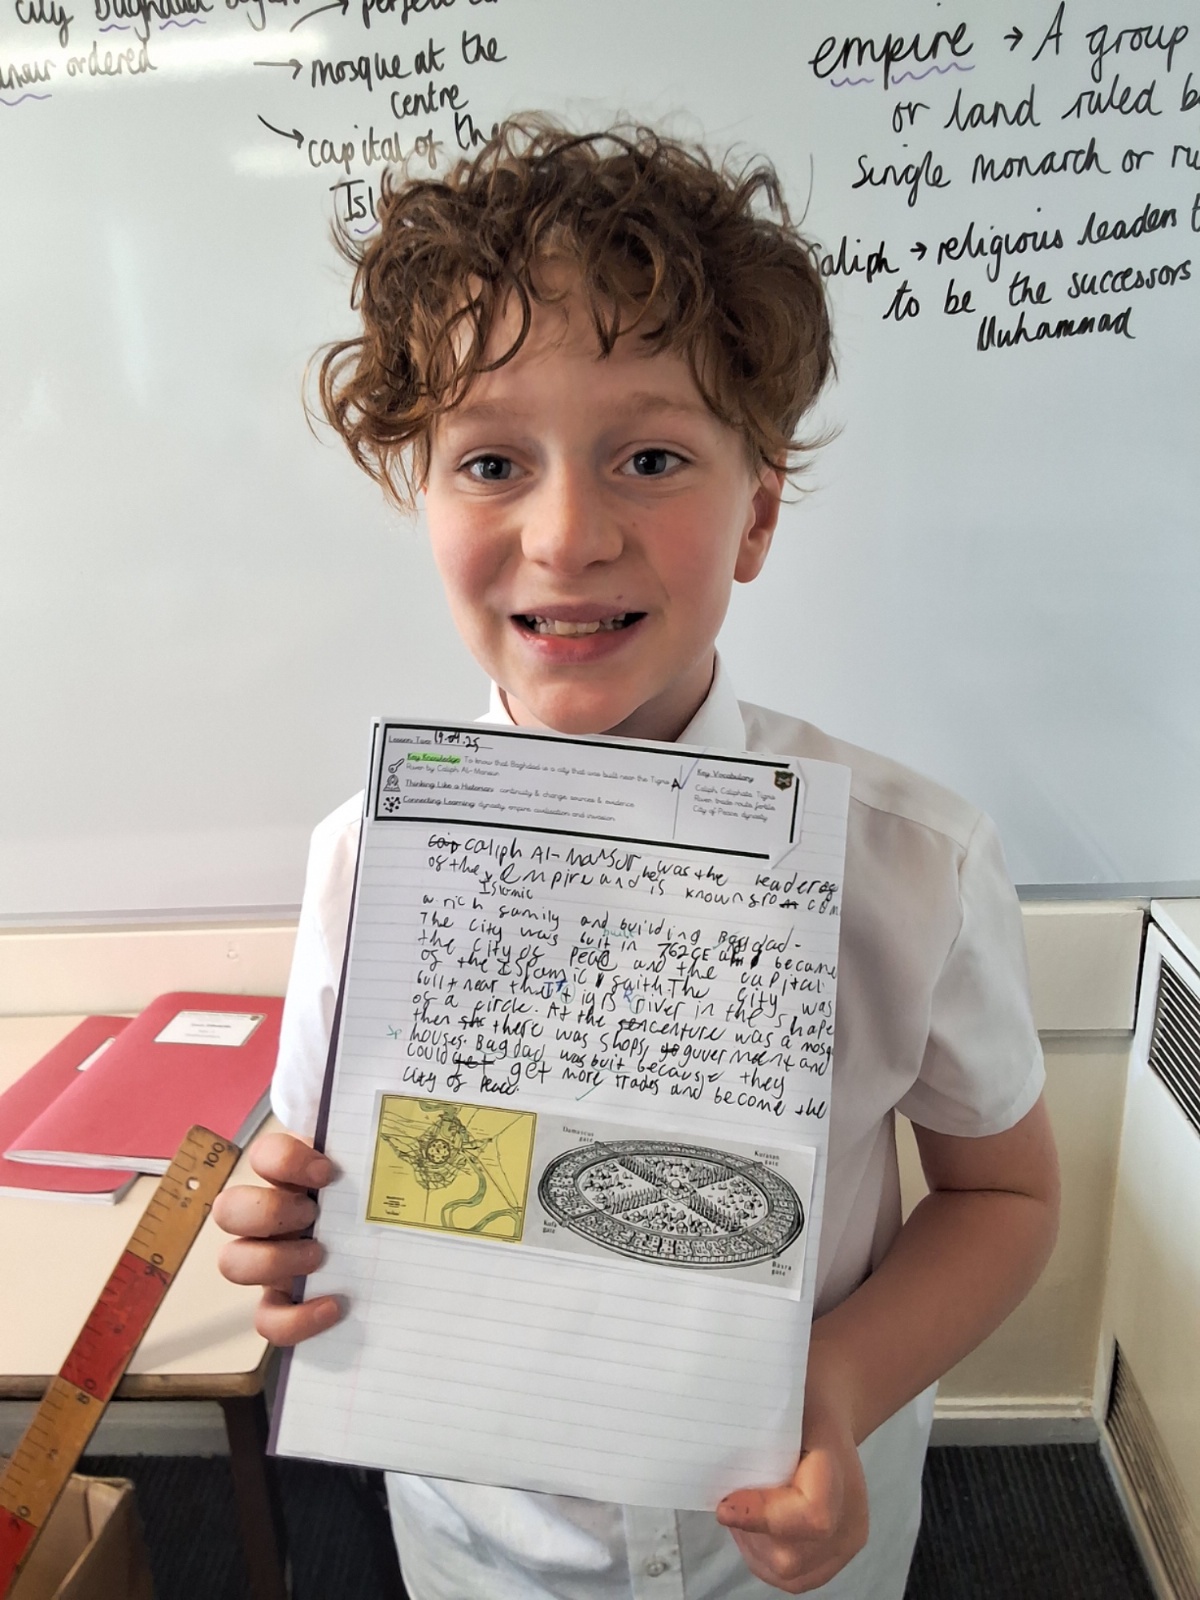 city Baghdad began → perfect
ordered → mosque at the
centre
capital of the
Isl
empire → A group
or land ruled b
Single monarch or ru
Caliph → religious leaders t
to be the successors
Muhammad
Lesson Two: 19.04.25
Key Knowledge: To know that Baghdad is a city that was built near the Tigris
River by Caliph Al-Mansur
Thinking Like a Historian: continuity & change sources & evidence
Connecting Learning: dynasty empire civilisation and invasion
A
Key Vocabulary
Caliph Caliphate Tigris
River trade route fertile
City of Peace dynasty
caliph Al-Mansur, he was the leader
of the empire and is known
Islamic
a rich family and building Bagdad-
The city was built in 762CE and became
the city of peace and the capital
of the Islamic faith. The city was
built near the tigris river in the shape
of a circle. At the centure was a mosq
then there was shops, guverment and
sp houses. Bagdad was buit because they
could get more trades and become the
city of peace.
Damascus
gate
Kurasan
gate
Kufa
gate
Basra
gate
100
90
80